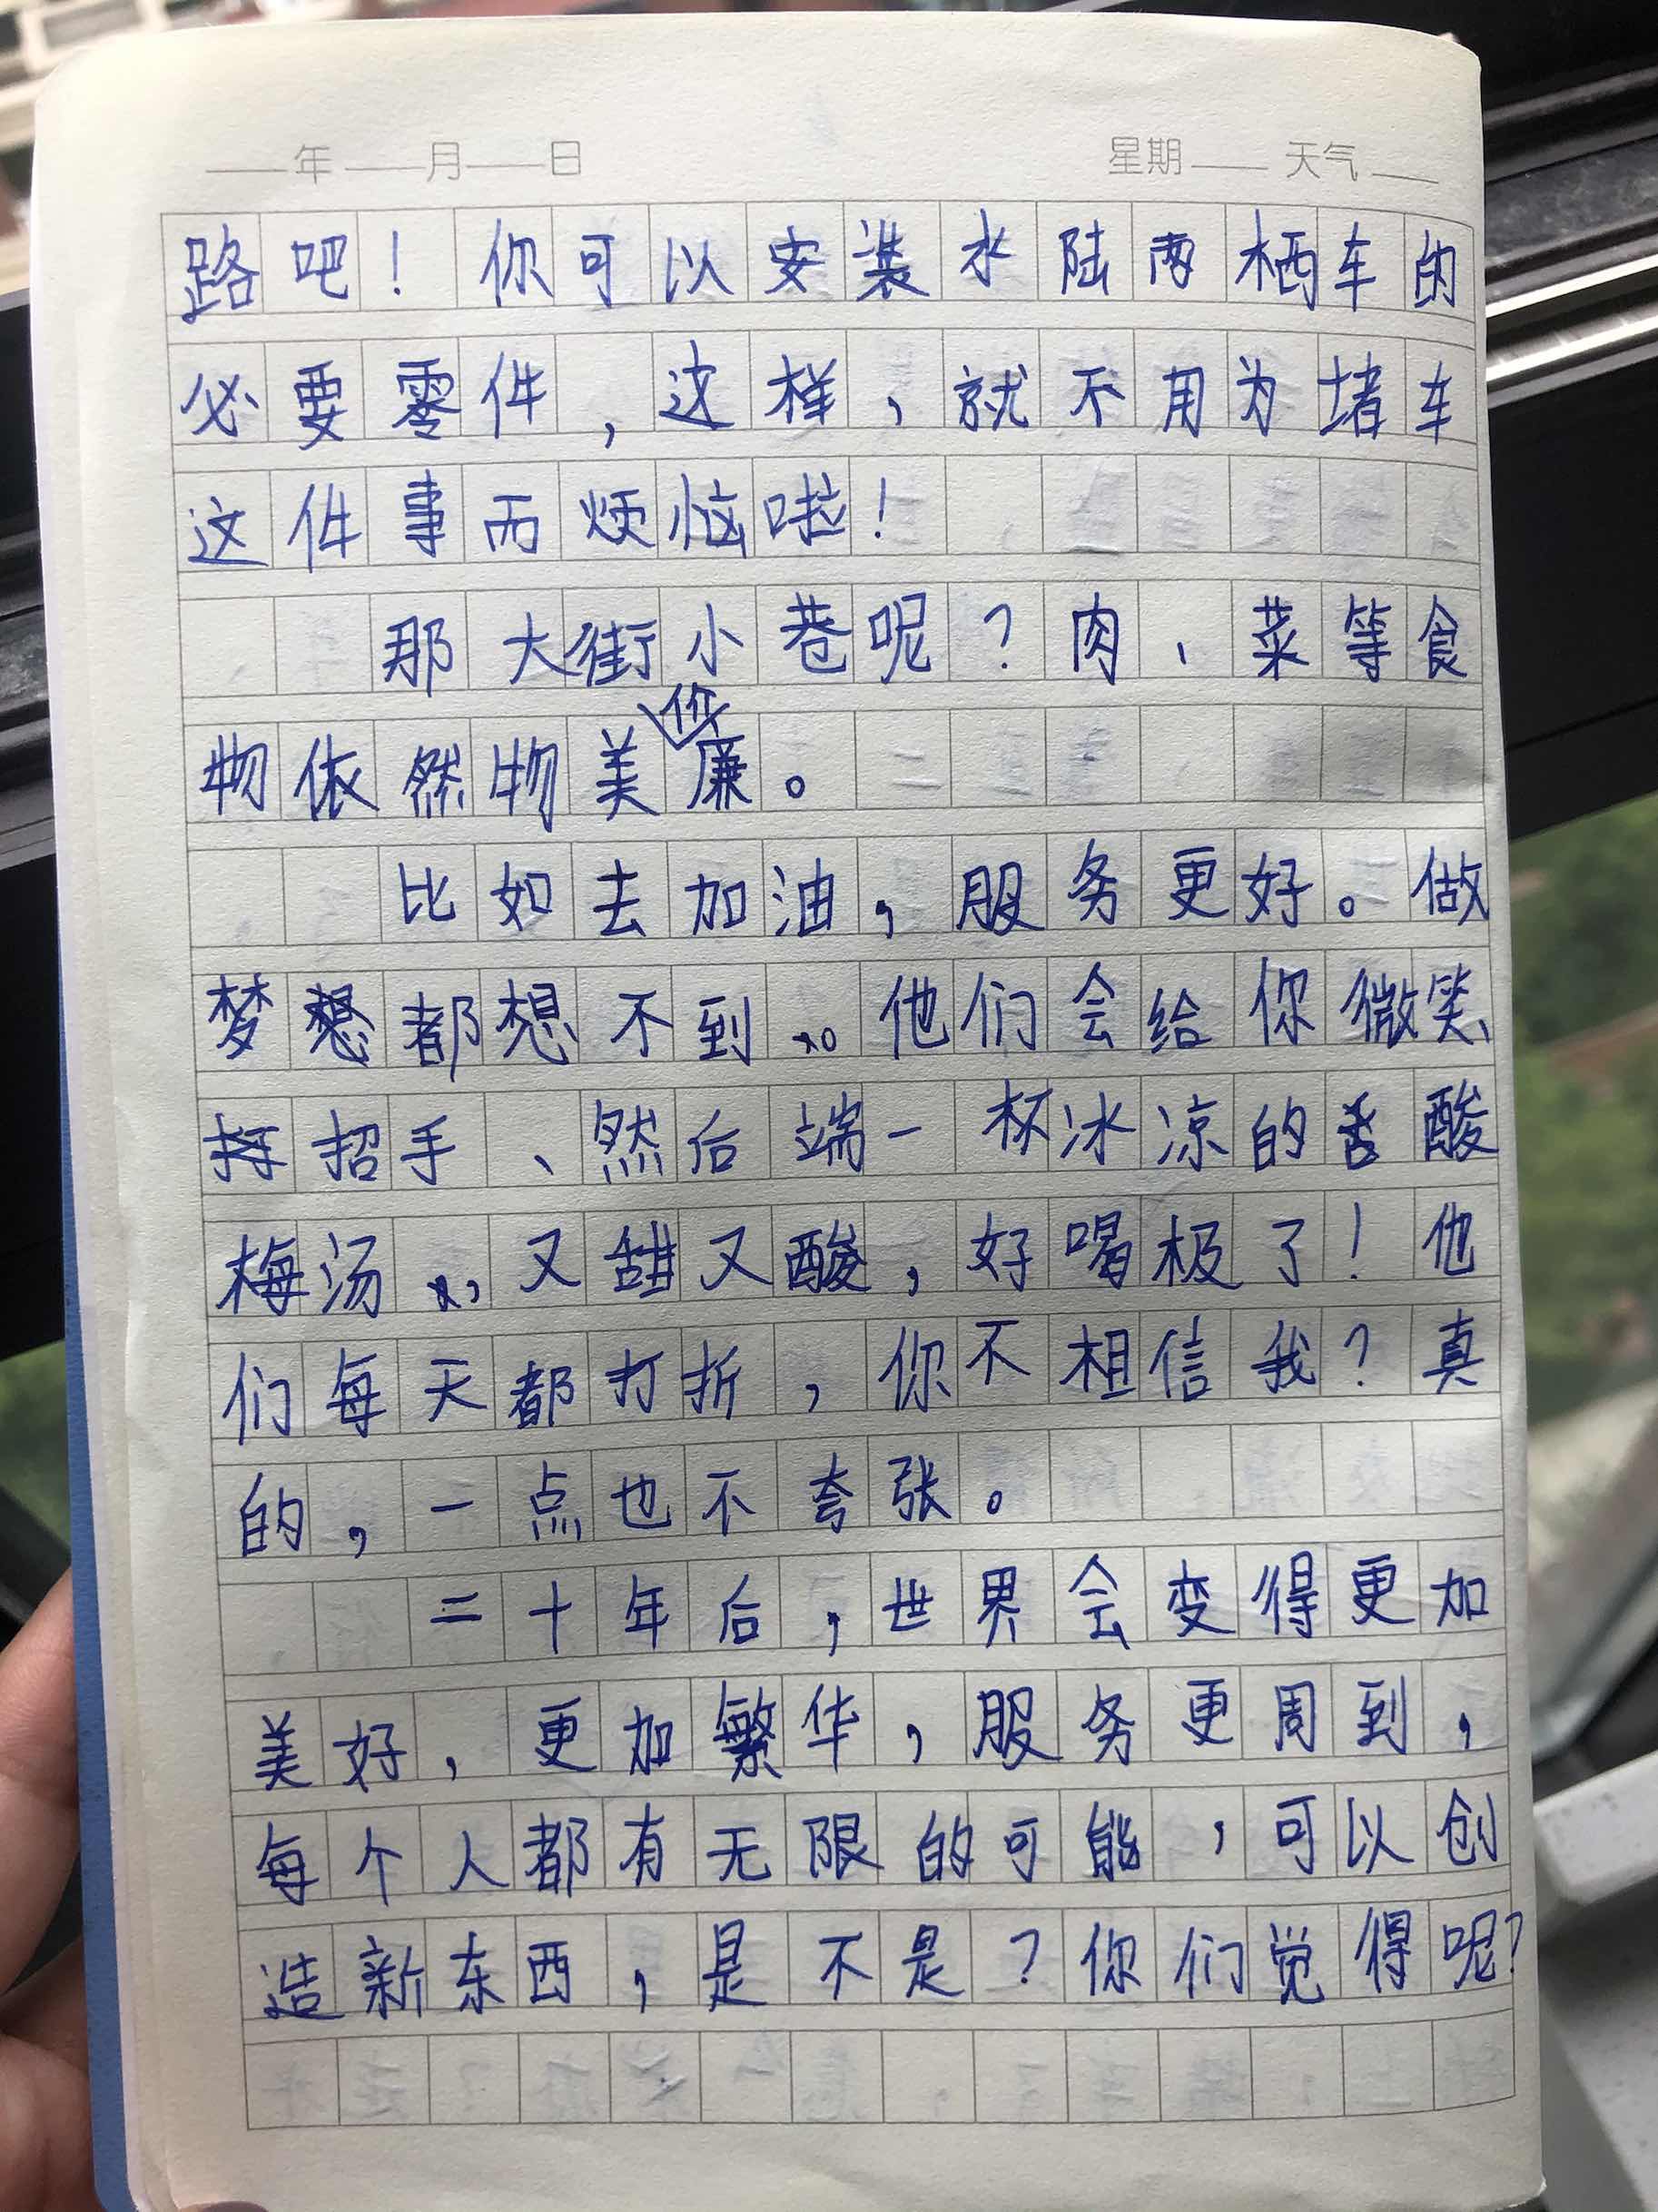 年 月 日 星期 天气
路吧！你可以安装水陆两栖车的
必要零件，这样，就不用为堵车
这件事而烦恼啦！
那大街小巷呢？肉、菜等食
物依然物美价廉。
比如去加油，服务更好。做
梦都想不到。他们会给你微笑、
招手、然后端一杯冰凉的酸
梅汤，又甜又酸，好喝极了！他
们每天都打折，你不相信我？真
的，一点也不夸张。
二十年后，世界会变得更加
美好，更加繁华，服务更周到，
每个人都有无限的可能，可以创
造新东西，是不是？你们觉得呢？